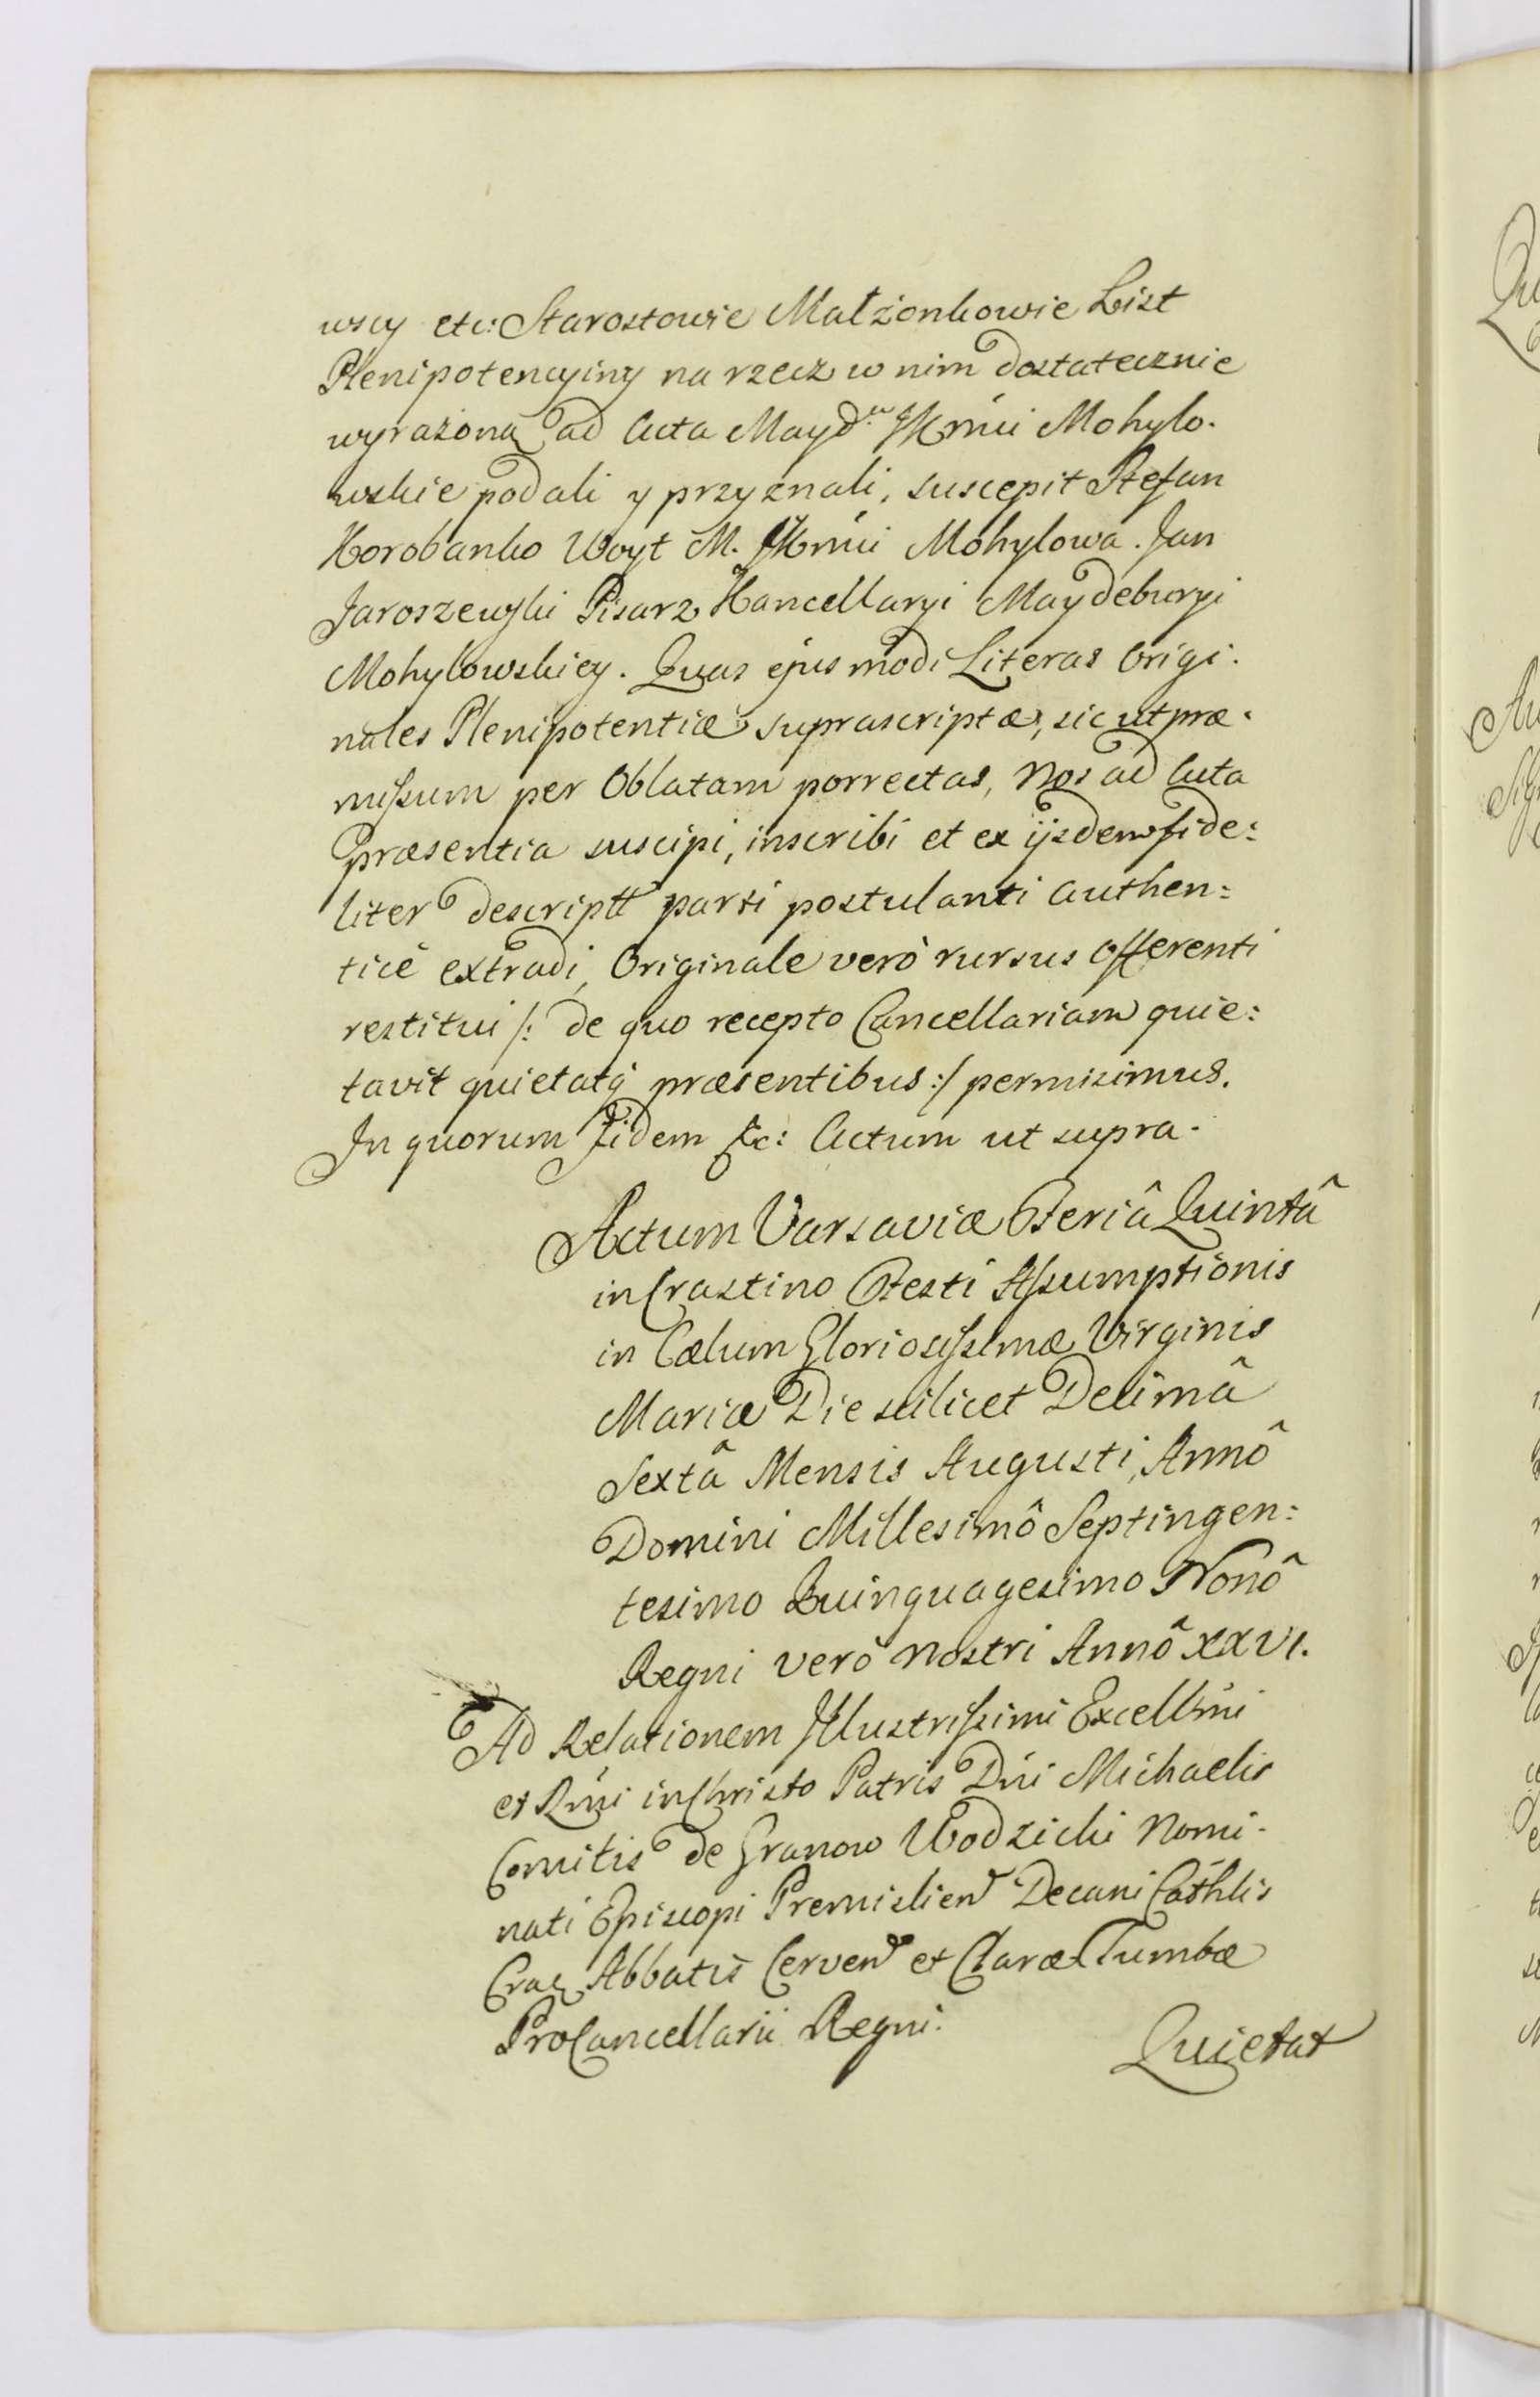 wscy etc: Starostowie Małżonkowie List
Plenipotencyiny na rzecz w nim dostatecznie
wyrażoną ad Acta Mayd. JKmci Mohylo-
wskie podali y przyznali, suscepit Stefan
Horobanko Woyt M. JKmci Mohylowa. Jan
Jaroszewski Pisarz Kancellaryi Maydeburyi
Mohylowskiey. Quas ejusmodi Literas Origi-
nales Plenipotentiæ supra­scriptæ, sicut præ-
missum per Oblatam porrectas, Nos ad Acta
Præsentia suscipi, inscribi et ex ijsdem fide=
liter descriptt parti postulanti Authen=
ticè extradi, Originale verò rursus Offerenti
restitui /: de quo recepto Cancellariam quie=
tavit quietatq præsentibus :/ permisimus.
In quorum Fidem &c: Actum ut supra.
Actum Varsaviæ Feriâ Quintâ
in Crastino Festi Assumptionis
in Cælum Gloriosissimæ Virginis
Mariæ Die scilicet Decimâ
Sextâ Mensis Augusti, Annô
Domini Millesimô Septingen=
tesimo Quinquagesimo Nonô
Regni verò nostri Annô XXVI.
Ad Relationem Illustrissimi Excellmi
et Rmi in Christo Patris Dni Michaelis
Comitis de Granow Wodzicki Nomi-
nati Episcopi Premislien Decani Cathlis
Crac Abbatis Cerven et Claræ Tumbæ
ProCancellarii Regni.
Quietat